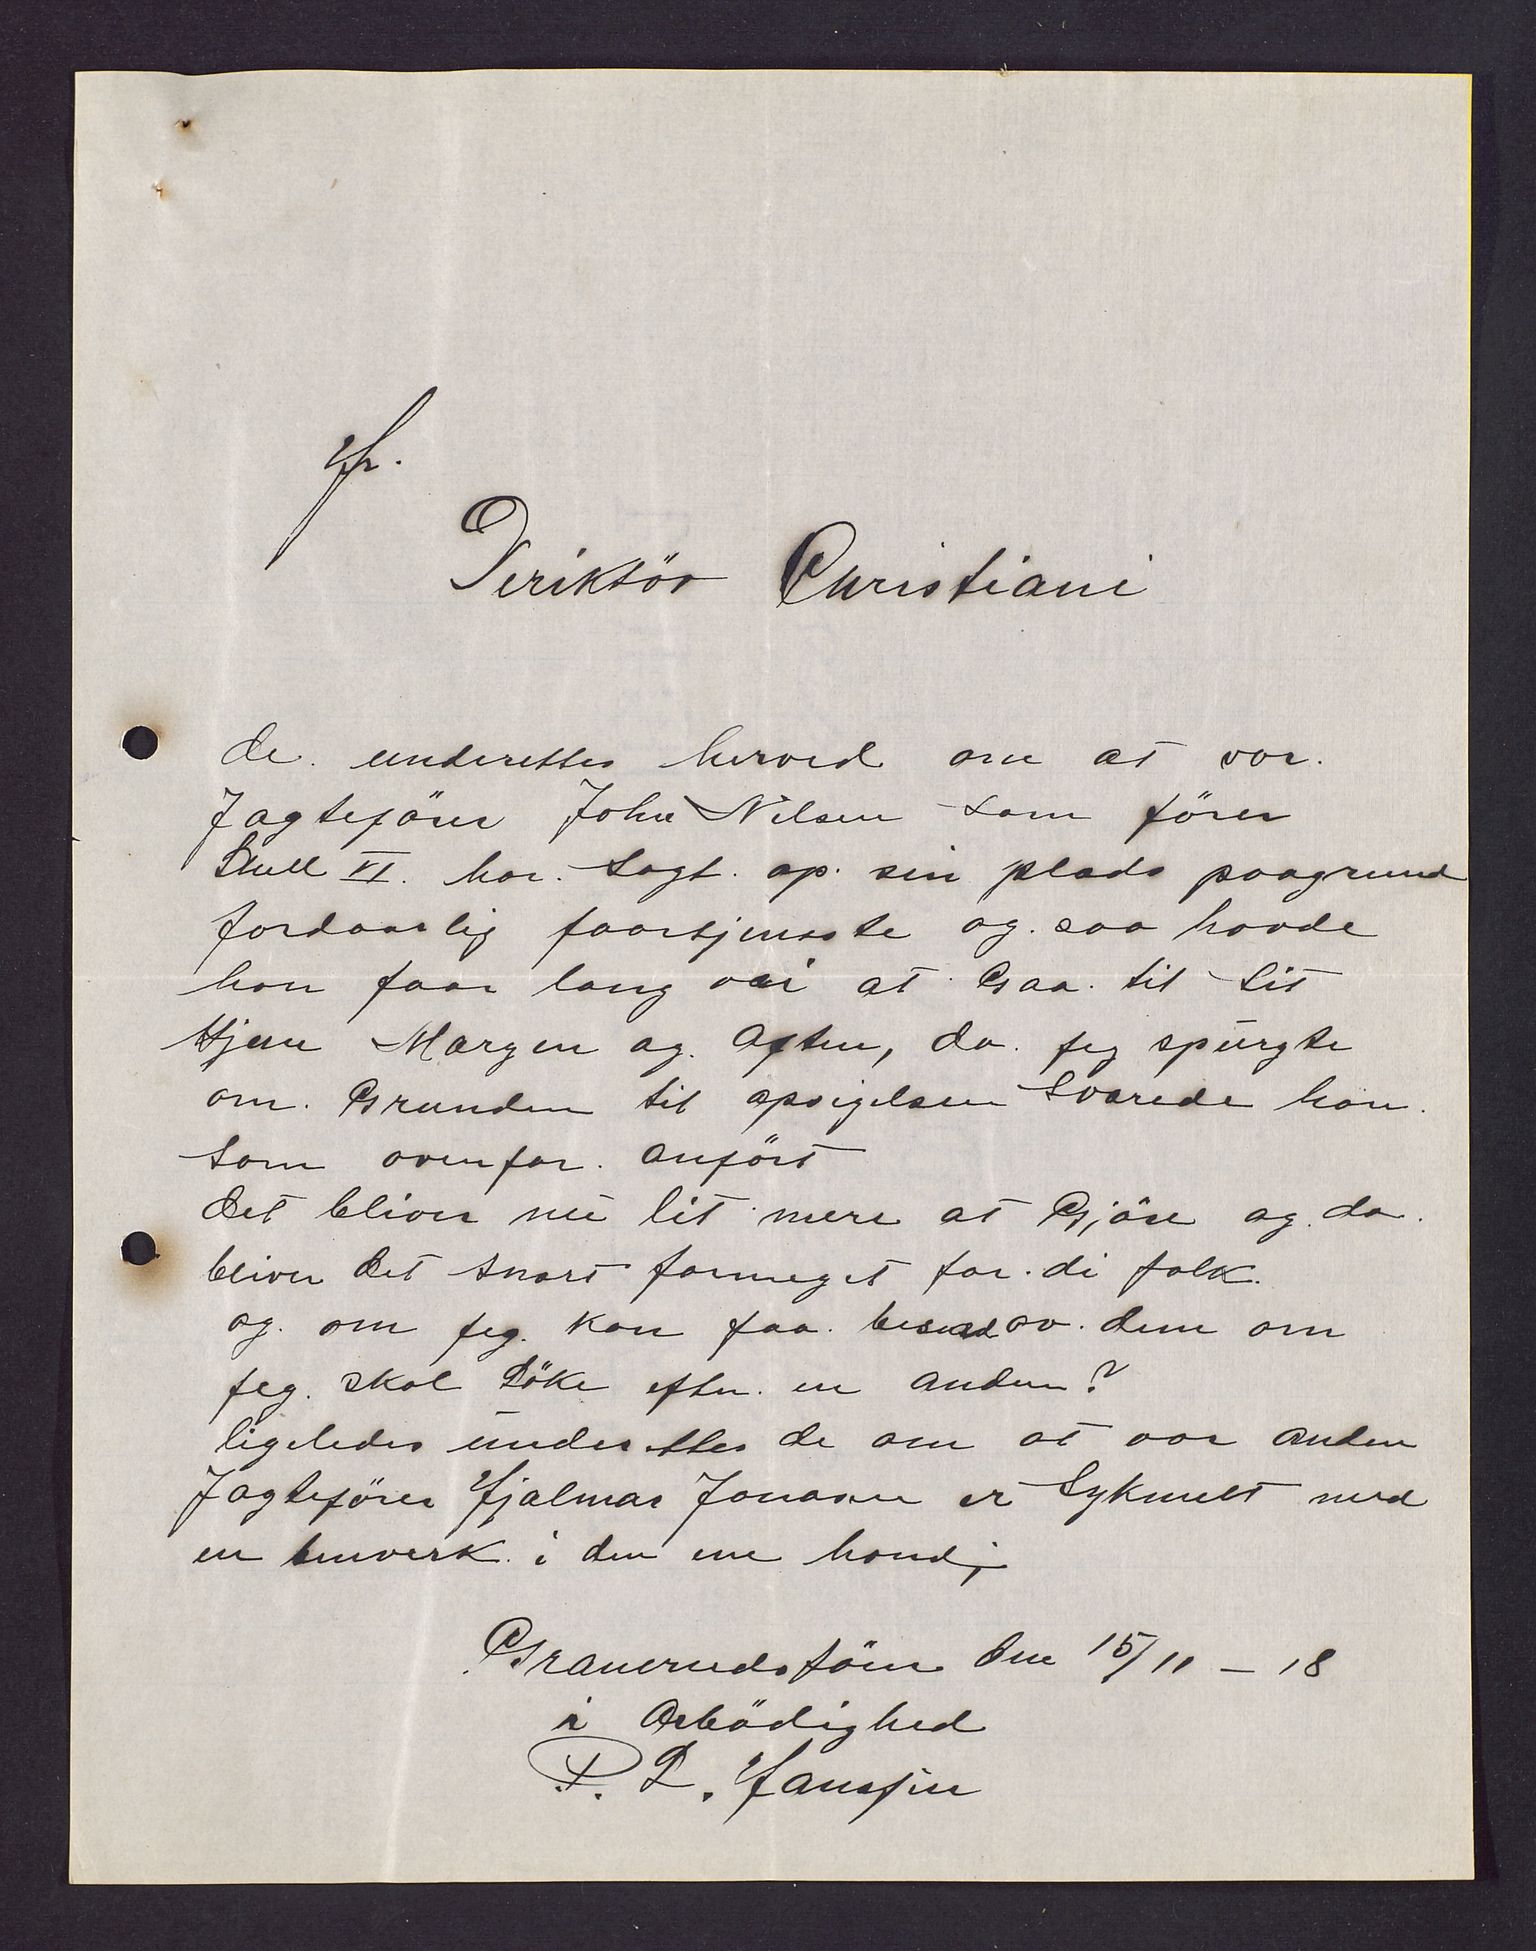 Hr.
Deriktör Christiani
de. underettes herved om at vor.
Jagteförer John Nilsen som förer
Shell VI. har. sagt. op. sin plads paagrund
fordaarlig faartjeneste og. saa havde
han faar lang vei at Gaa. til sit
Hjem Morgen og. Aften, da. jeg spurgte
om. Grunden til opsigelsen Svarede han.
som ovenfor. anfört
det bliver nu lit mere at Gjöre og. da.
bliver det snart formeget for. di folk.
og. om jeg. kan faa. besked av. dem om
jeg. skal söke efter. en anden?
ligeledes underettes de om at vor anden
Jagteförer Hjalmar Jonasen er Sykmelt med
en benverk. i den ene hand,
Granerudstöen den 15/11 – 18
i Arbödighed
P. L. Hanssen